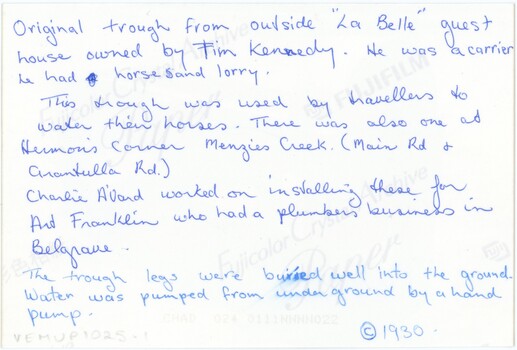 Original trough from outside "La Belle" guest
house owned by Tim Kennedy. He was a carrier
he had horses and lorry.
This trough was used by travellers to
water their horses. There was also one at
Hermons Corner Menzies Creek. (Main Rd &
Grantulla Rd.)
Charlie A'Vard worked on installing these for
Ant Franklin who had a plumbers business in
Belgrave.
The trough legs were buried well into the ground.
Water was pumped from under ground by a hand
pump.
VEMUP1025.1
©1930.
Fujicolor Crystal Archive
Paper
FUJIFILM